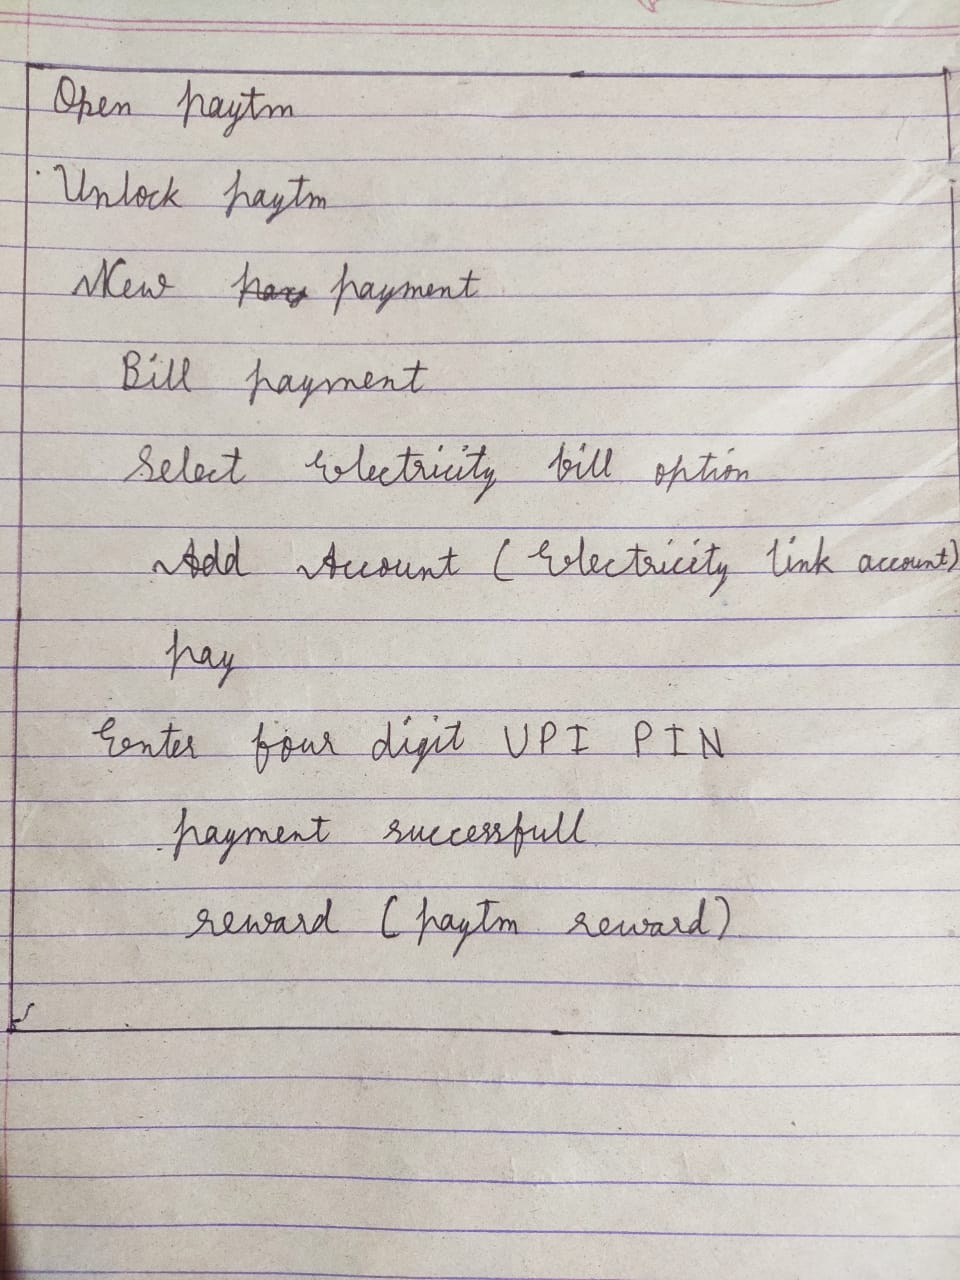 Open paytm
Unlock paytm
New payment
Bill payment
Select Electricity bill option
Add Account (Electricity link account)
pay
Enter four digit UPI PIN
payment successfull
reward (paytm reward)